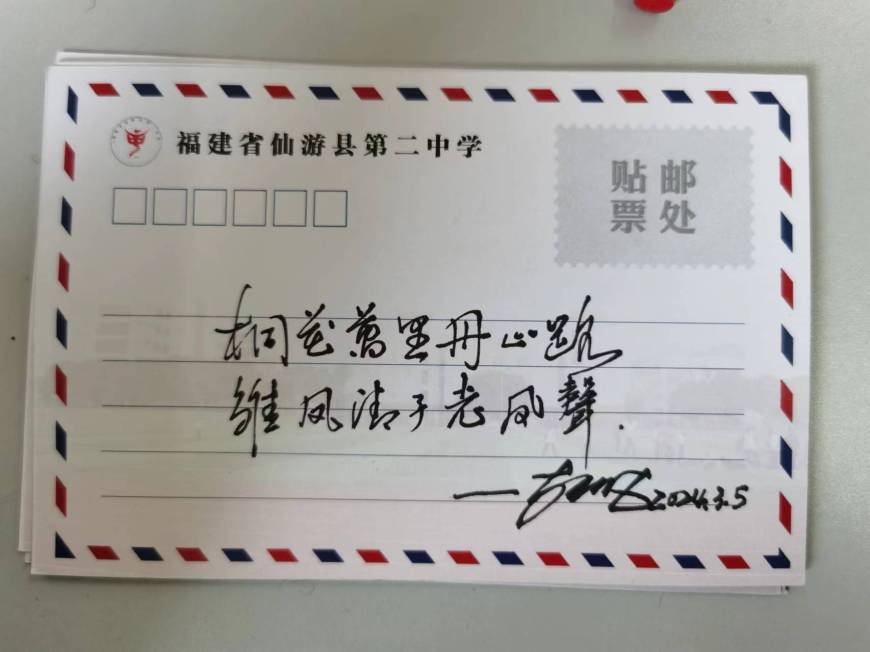 福建省仙游县第二中学
贴邮
票处
桐花萬里丹山路
雏凤清于老凤聲.
2024.3.5